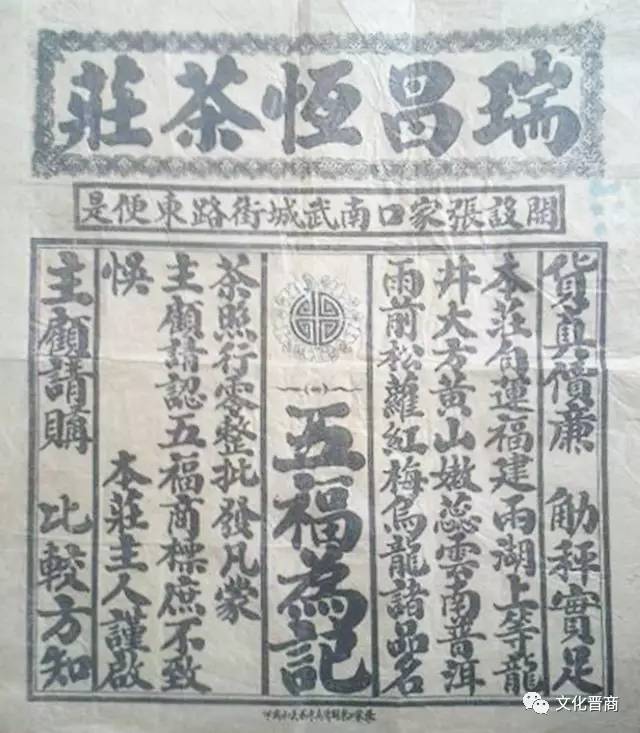 瑞昌恆茶莊
開設張家口南武城街路東便是
貨真價廉 觔秤實足
本莊自運福建兩湖上等龍
井大方黃山嫩蕊雲南普洱
雨前松蘿紅梅烏龍諸品名
五福為記
茶照行零整批發凡蒙
主顧請認五福商標庶不致
悞 本莊主人謹啟
主顧請購 比較方知
文化晋商